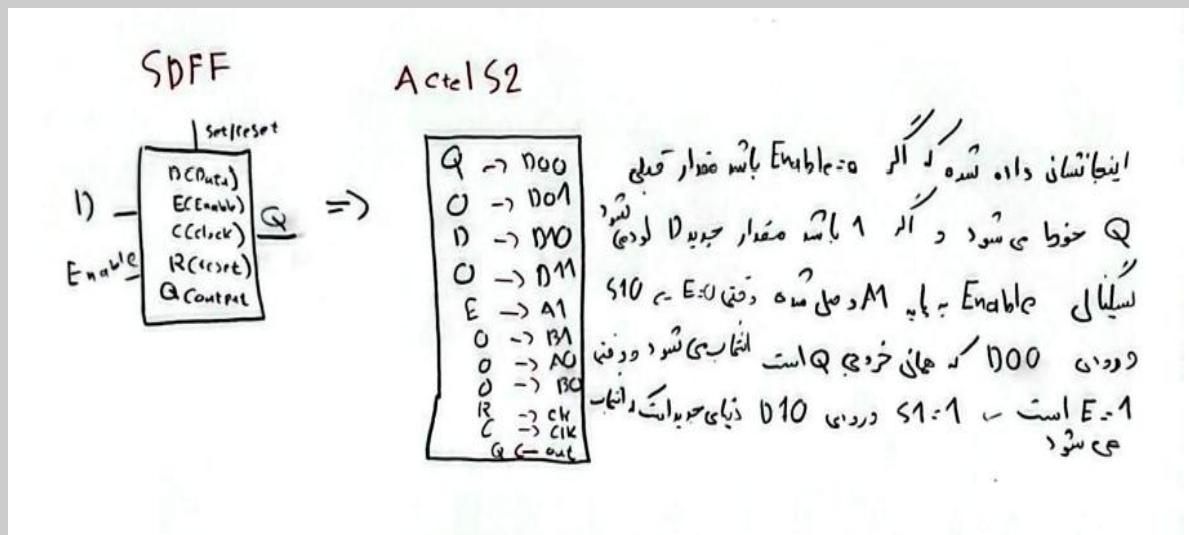 SDFF
Actel S2
set/reset
D(Data)
E(Enable)
C(clock)
R(reset)
Q(output
D
Enable
Q
=>
Q -> D00
0 -> D01
D -> D10
0 -> D11
E -> A1
0 -> B1
0 -> A0
0 -> B0
R -> clk
C -> clk
Q <- out
اینجا نشان داده شده که اگر Enable=0 باشد مقدار قبلی
Q حفظ می شود و اگر 1 باشد مقدار جدید D لود می شود
سیگنال Enable به پایه A1 وصل شده وقتی E=0 S10
ورودی D00 که همان خروجی Q است انتخاب می شود و وقتی
E=1 است S1=1 ورودی D10 جدید است انتخاب
می شود